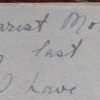 arest Mo
last
I have